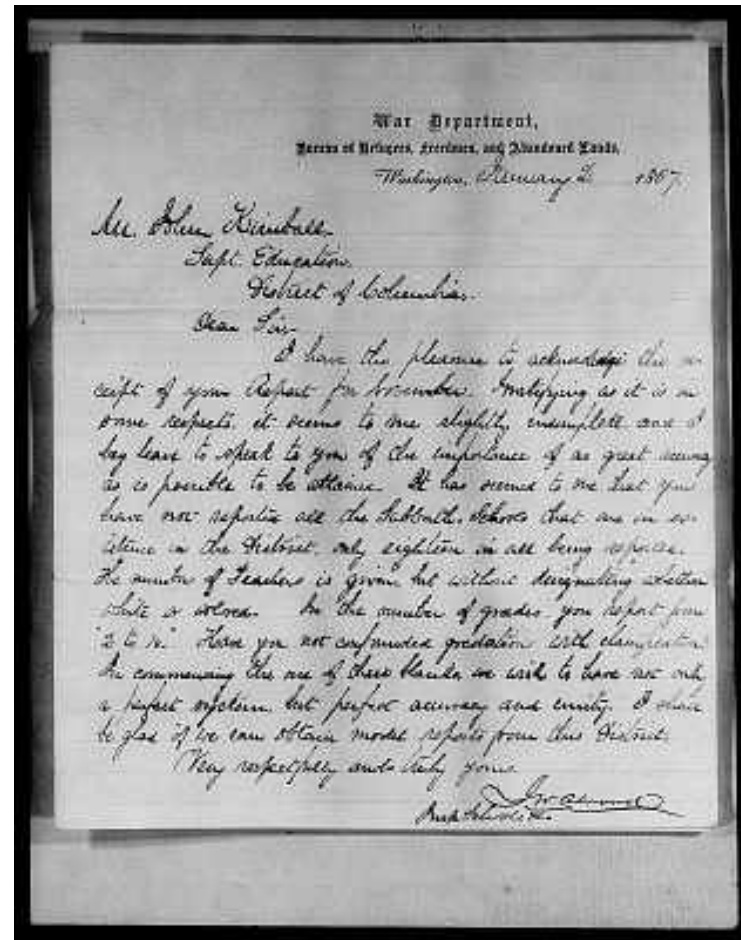 War Department,
Bureau of Refugees, Freedmen, and Abandoned Lands,
Washington, January 2 1867
Mr. John Kimball
Supt. Education
District of Columbia.
Dear Sir
I have the pleasure to acknowledge the re
ceipt of your Report for November. Gratifying as it is in
some respects, it seems to me slightly incomplete and I
beg leave to speak to you of the importance of as great accuracy
as is possible to be attained. It has seemed to me that you
have not reported all the Sabbath Schools that are in ex
istence in the District, only eighteen in all being reported.
The number of Teachers is given, but without designating whether
white or colored. In the number of grades you report from
"2 to Have you not confounded gradation with classification.
In commencing the use of these blanks we wish to have not only
a perfect system, but perfect accuracy and unity. I shall
be glad if we can obtain model reports from this District.
Very respectfully and truly yours
J W Alvord
Insp Schools &c